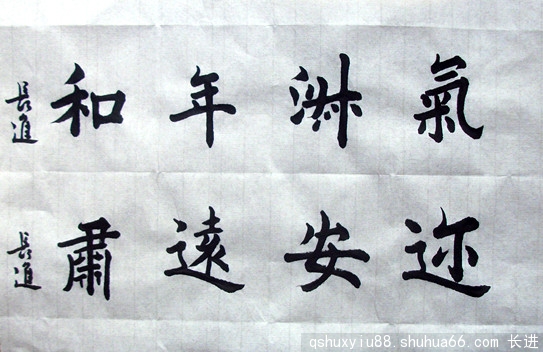 氣淑年和
長進
迩安遠肅
長進
qshuxyiu88.shuhua66.com 长进